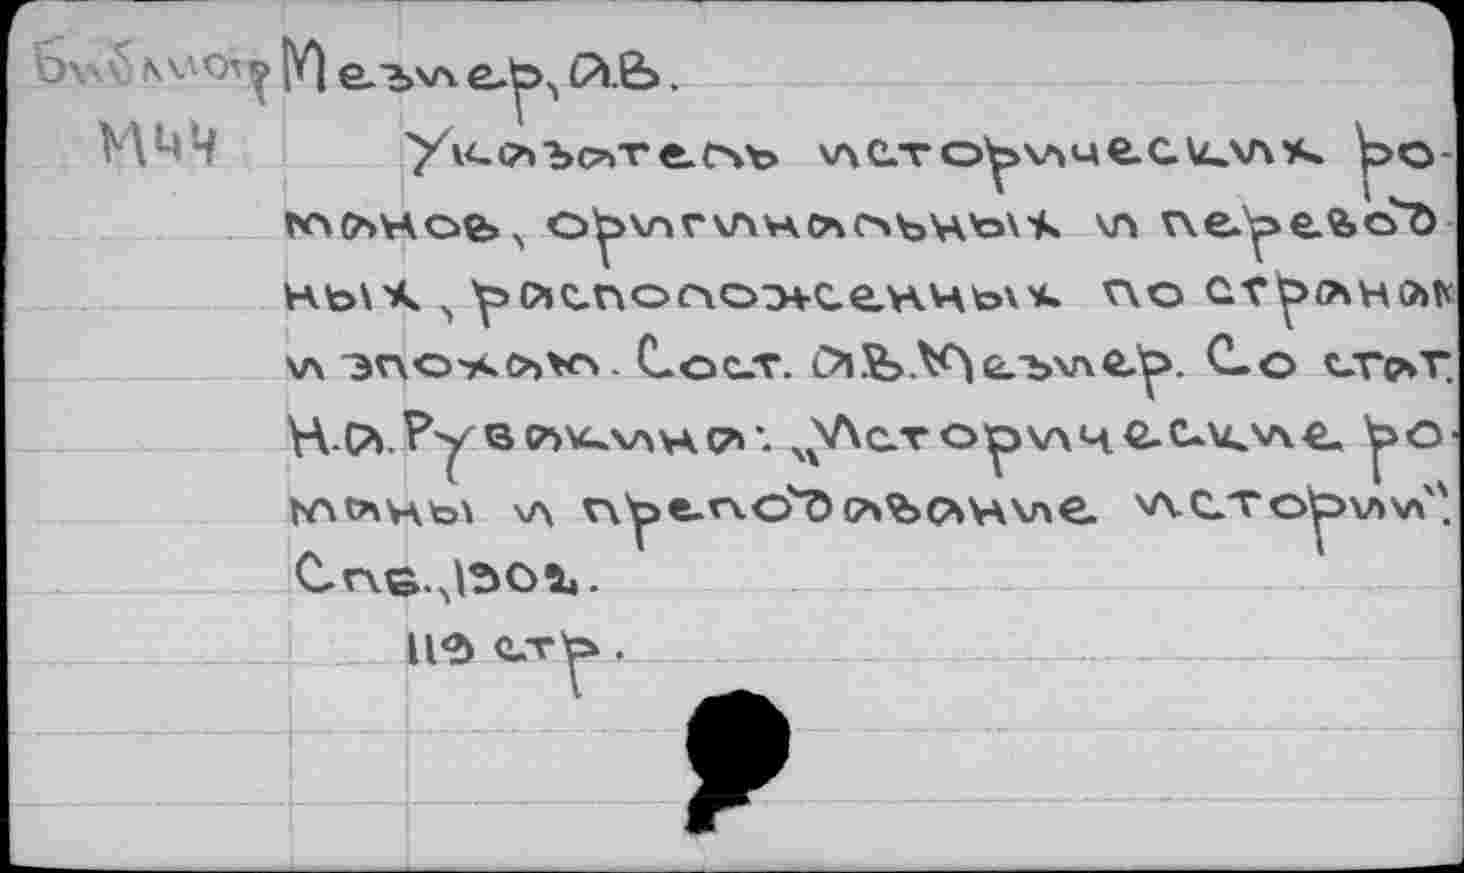 Библиогр Мезиер, А.В.
М44 Указатель исторических ро-
манов, оригинальных и перевод
ных, расположенных по странам
и эпохам. Сост. А.В.Мезиер. Со стат.
Н.А.Рубакина: „Исторические ро-
маны и преподавание истории".
Спб.,1902.
119 стр.